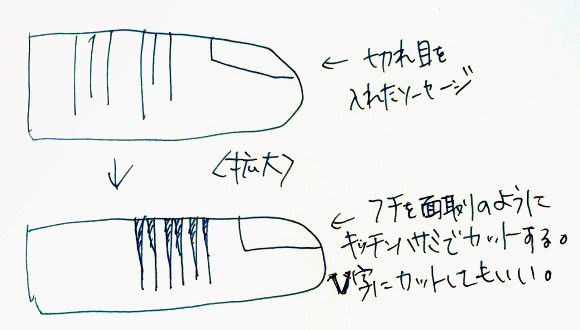 ← 切れ目を
入れたソーセージ
<拡大>
← フチを面取りのように
キッチンハサミでカットする。
V字にカットしてもいい。